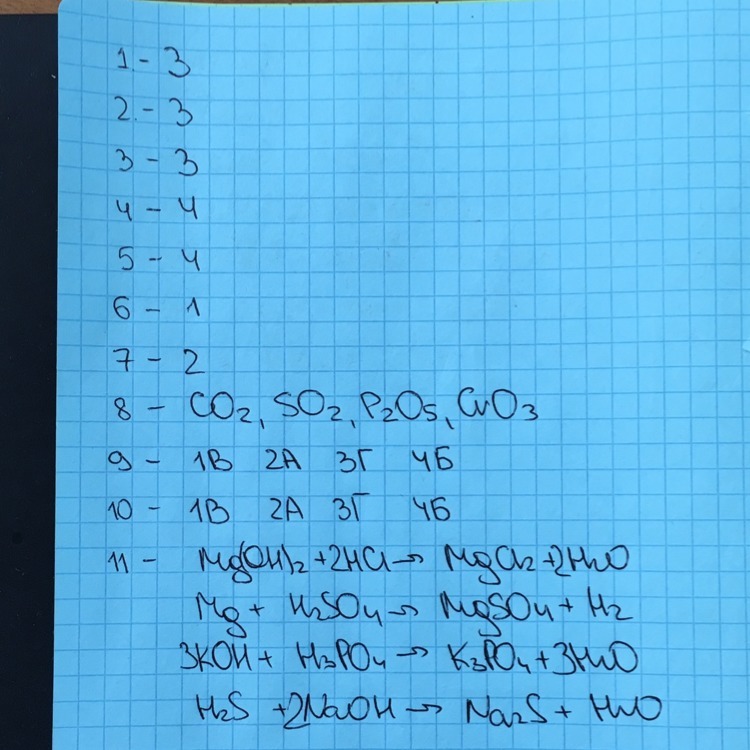 1 - 3
2. - 3
3 - 3
4 - 4
5 - 4
6 - 1
7 - 2
8 - CO2, SO2, P2O5, CrO3
9 - 1В 2А 3Г 4Б
10 - 1В 2А 3Г 4Б
11 - Mg(OH)2 + 2HCl → MgCl2 + 2H2O
Mg + H2SO4 → MgSO4 + H2
3KOH + H3PO4 → K3PO4 + 3H2O
H2S + 2NaOH → Na2S + H2O